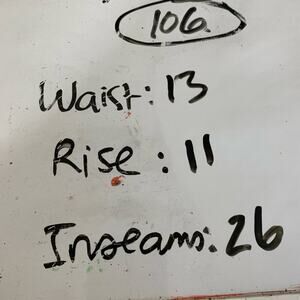 106
Waist: 13
Rise: 11
Inseams: 26